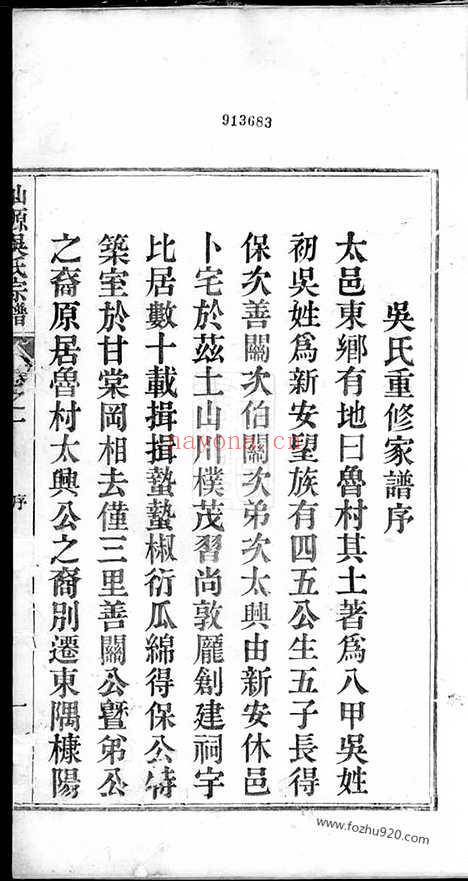 913683
吳氏重修家譜序
太邑東鄉有地曰魯村其土著爲八甲吳姓
初吳姓爲新安望族有四五公生五子長得
保次善關次伯關次弟次太興由新安休邑
卜宅於茲土山川樸茂習尚敦龐創建祠宇
比居數十載揖揖蟄蟄椒衍瓜綿得保公特
築室於甘棠岡相去僅三里善關公曁弟公
之裔原居魯村太興公之裔別遷東隅槺陽
仙源吳氏宗譜
卷之一
序
一
nayona.cn
www.fozhu920.com